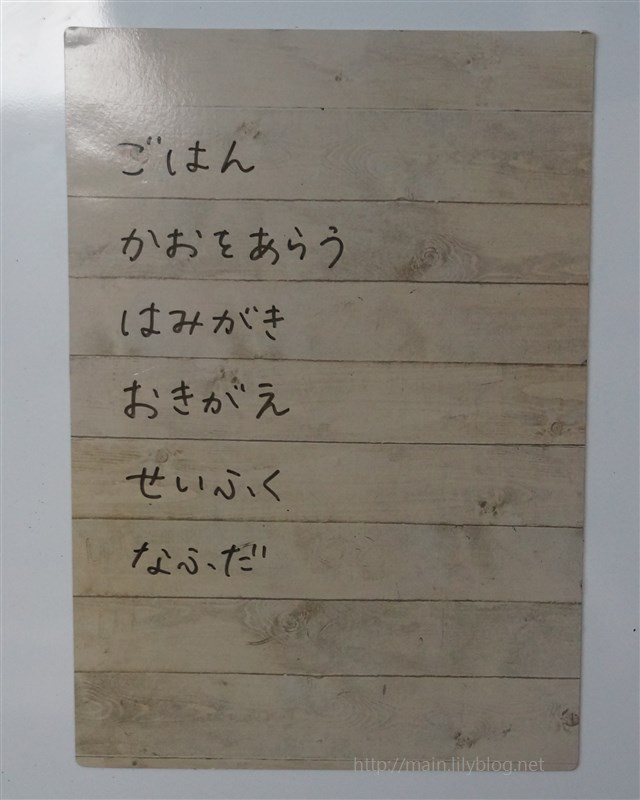 ごはん
かおをあらう
はみがき
おきがえ
せいふく
なふだ
http://main.lilyblog.net